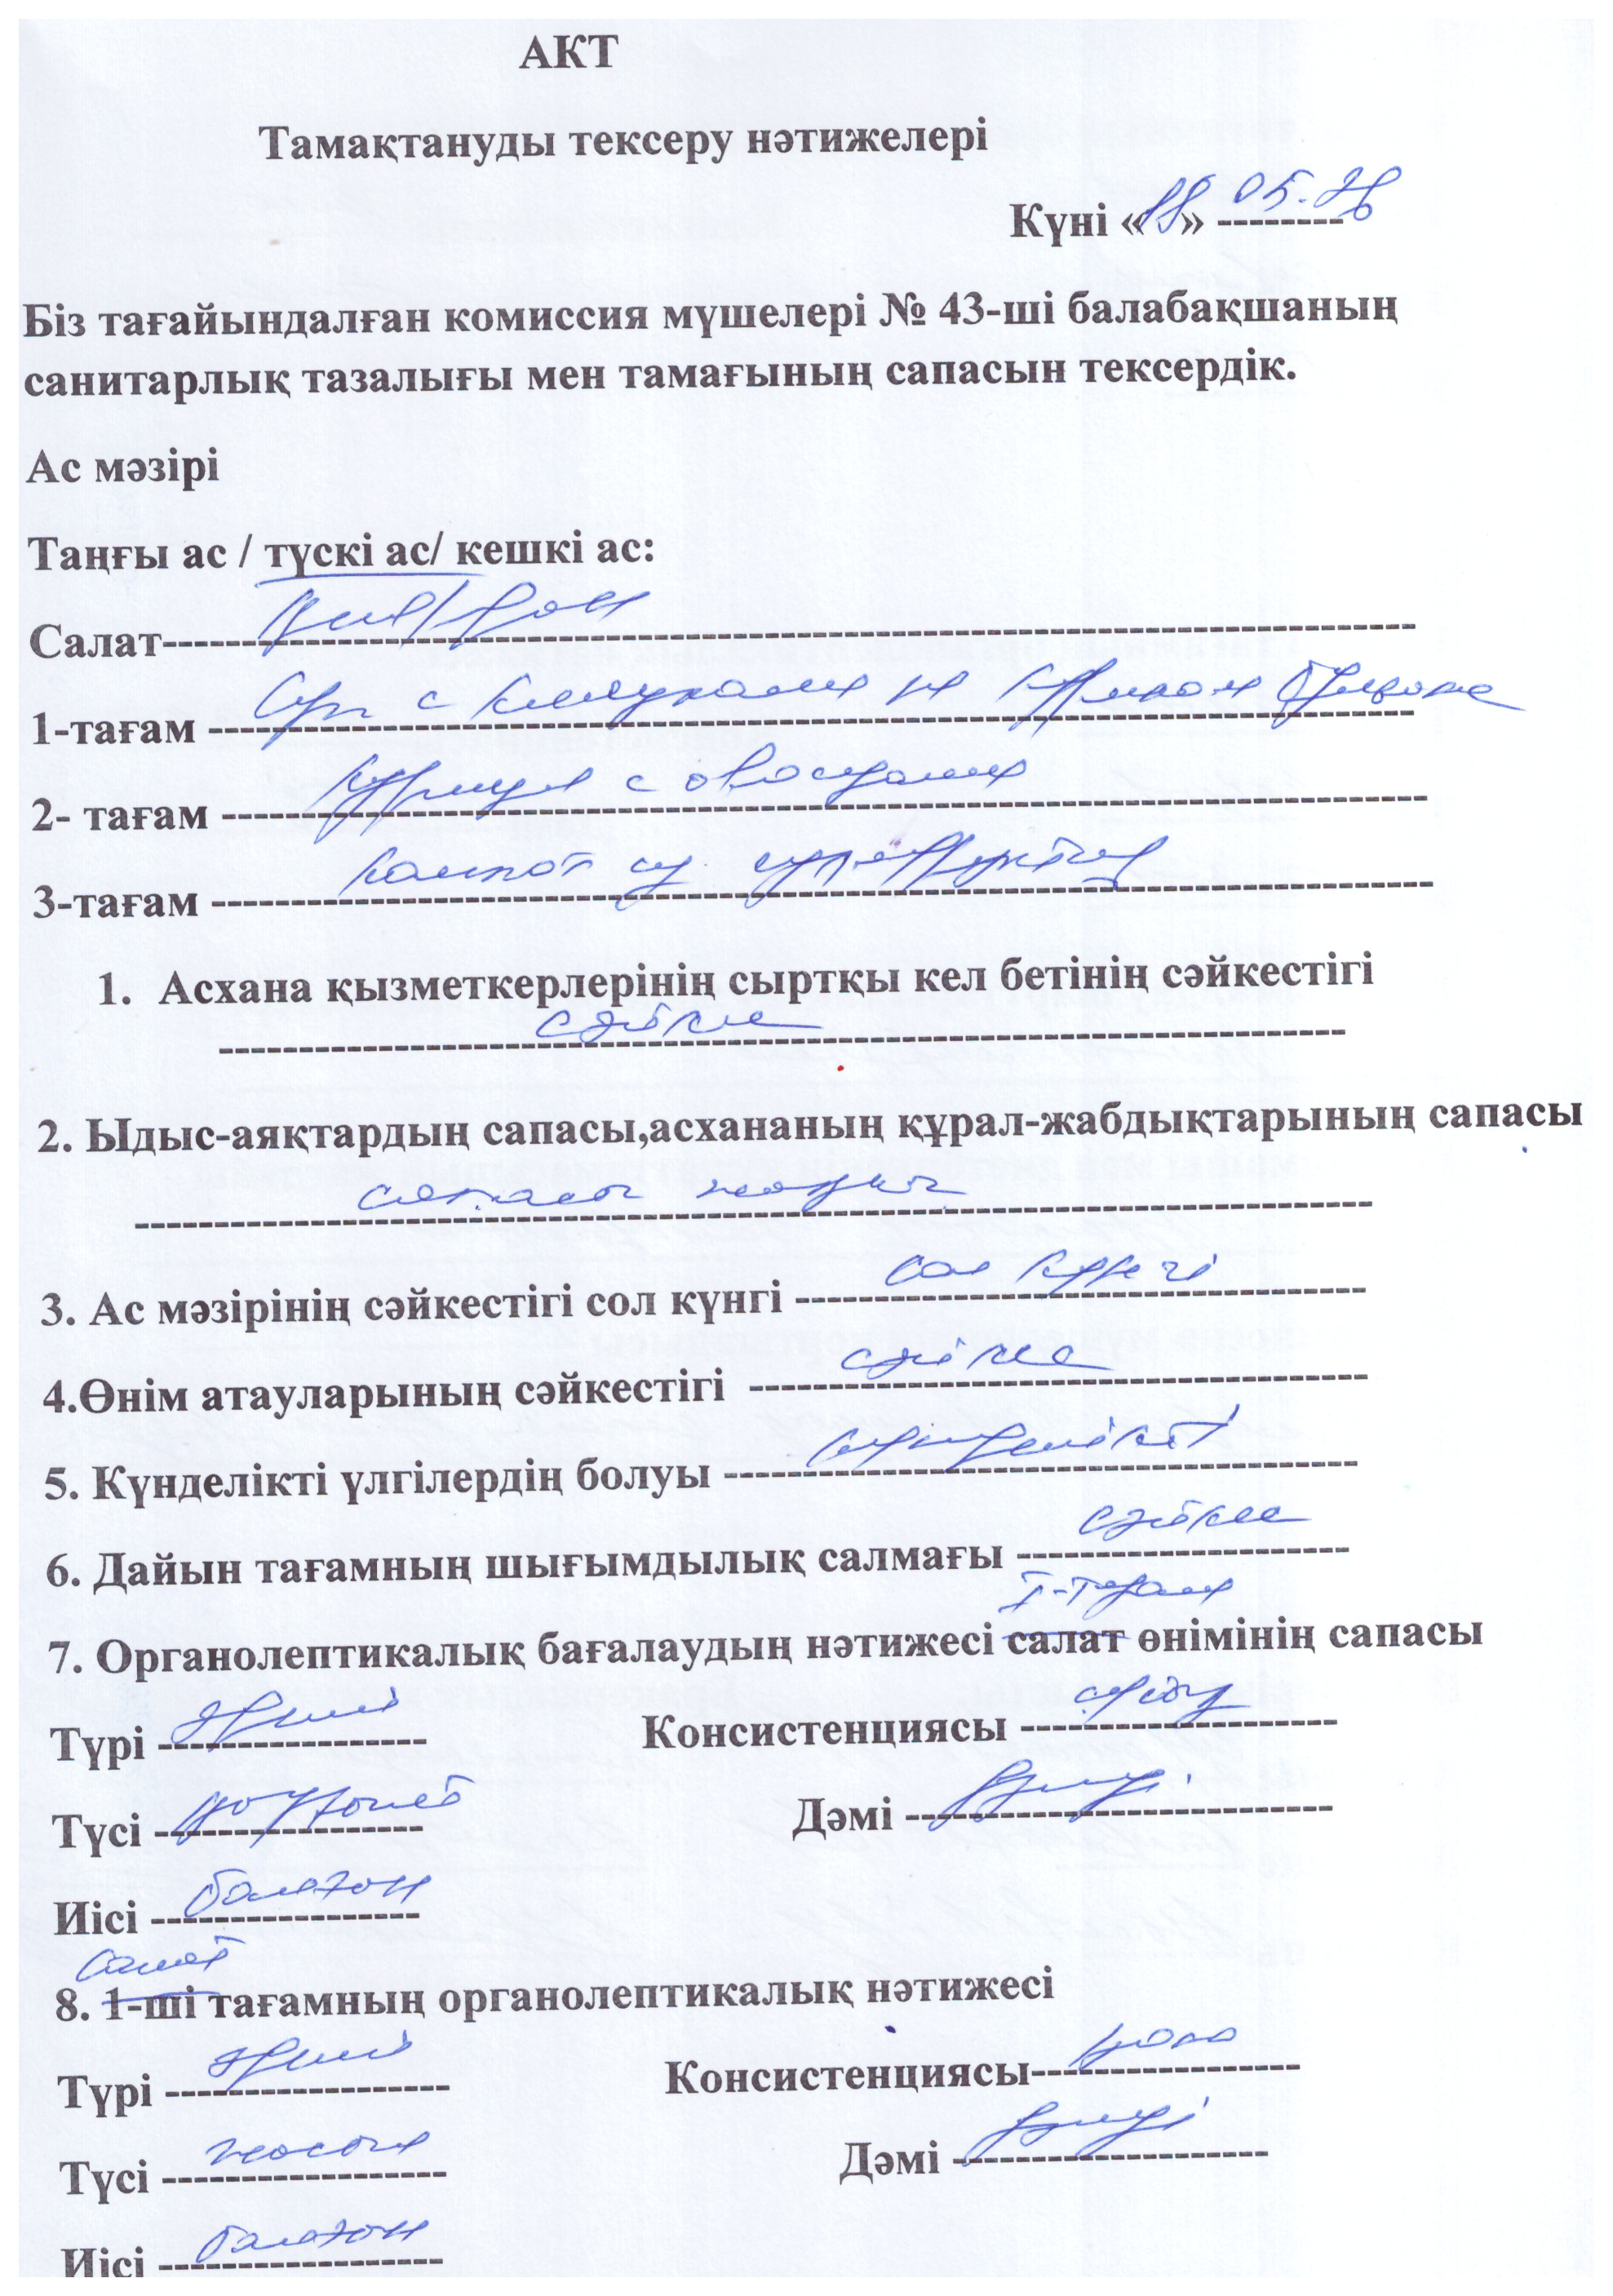 АКТ
Тамақтануды тексеру нәтижелері
Күні «18» 05.26
Біз тағайындалған комиссия мүшелері № 43-ші балабақшаның
санитарлық тазалығы мен тамағының сапасын тексердік.
Ас мәзірі
Таңғы ас / түскі ас/ кешкі ас:
Салат
1-тағам Суп с клецками на курином бульоне
2- тағам Курица с овощами
3-тағам компот из сухофруктов
1. Асхана қызметкерлерінің сыртқы кел бетінің сәйкестігі
сәйкес
2. Ыдыс-аяқтардың сапасы,асхананың құрал-жабдықтарының сапасы
сапасы жақсы
3. Ас мәзірінің сәйкестігі сол күнгі сол күнгі
4.Өнім атауларының сәйкестігі сәйкес
5. Күнделікті үлгілердің болуы күнделікті
6. Дайын тағамның шығымдылық салмағы сәйкес
I-тағам
7. Органолептикалық бағалаудың нәтижесі салат өнімінің сапасы
Түрі әрлі Консистенциясы сұйық
Түсі Дәмі дәмді
Иісі балғын
салат
8. 1-ші тағамның органолептикалық нәтижесі
Түрі әрлі Консистенциясы
Түсі жасыл Дәмі дәмді
Иісі балғын